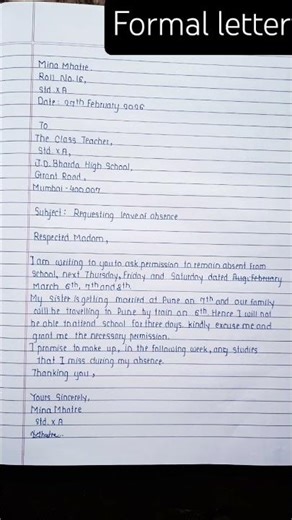 Formal letter
Mina Mhatre
Roll No. 16,
Std. X A
Date: 29th February 2026
To
The Class Teacher,
Std. X A,
J.D. Bharda High School,
Grant Road,
Mumbai - 400 007
Subject: Requesting leave of absence
Respected Madam,
I am writing to you to ask permission to remain absent from
School, next Thursday, Friday and Saturday dated
March 6th, 7th and 8th
My sister is getting married at Pune on 7th and our family
will be travelling to Pune by train on 6th. Hence I will not
be able to attend school for three days. kindly excuse me and
grant me the necessary permission.
I promise to make up, in the following week, any studies
that I miss during my absence.
Thanking you,
Yours Sincerely,
Mina Mhatre
Std. X A